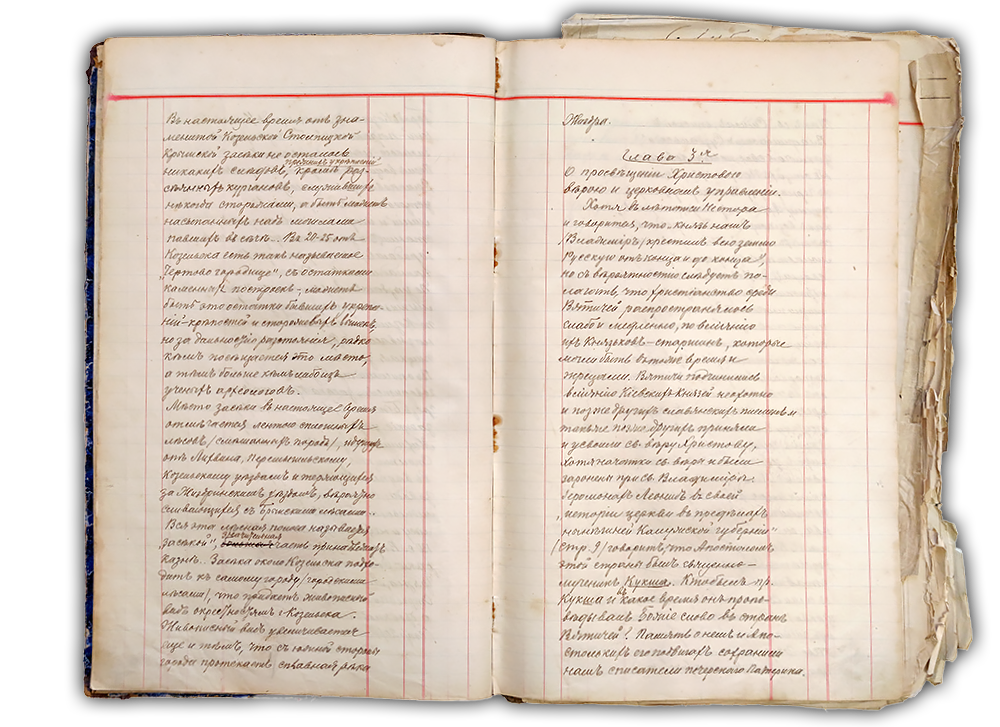 Въ настоящее время отъ зна-
менитой Козельской Столпицкой
Крымской засѣки не осталось
прежнихъ укрѣпленій
никакихъ слѣдовъ, кромѣ раз-
сѣянныхъ кургановъ, служившихъ
нѣкогда сторожами, а быть можетъ
насыпанныхъ надъ могилами
павшихъ въ сѣчѣ. Въ 20-25 отъ
Козельска есть такъ называемое
"Чертово городище", съ остатками
каменныхъ построекъ, можетъ
быть это остатки бывшихъ укрѣпле-
ній-крѣпостей и сторожевыхъ вышекъ,
но за дальностію разстоянія, рѣдко
кѣмъ посѣщается это мѣсто,
а тѣмъ больше кѣмъ либо изъ
ученыхъ археологовъ.
Мѣсто засѣки въ настоящее время
отличается лентою сплошныхъ
лѣсовъ /смѣшанныхъ породъ/, идущихъ
отъ Лихвина, Перемышльскому,
Козельскому уѣздамъ и теряющихся
за Жиздринскимъ уѣздомъ,
сливающихся съ Брянскими лѣсами.
Вся эта лѣсная полоса называется
значительная
"засѣкой", часть принадлежитъ
казнѣ. Засѣка около Козельска подхо-
дитъ къ самому городу /городскими
лѣсами/, что придаетъ живописный
видъ окрестностямъ г. Козельска.
Живописный видъ увеличивается
еще и тѣмъ, что съ южной стороны
города протекаетъ сплавная рѣка
Жиздра.
Глава 3я
О просвѣщеніи Христовою
вѣрою и церковномъ управленіи.
Хотя въ лѣтописи Нестора
и говорится, что "князь нашъ
/Владиміръ/ крестилъ всю землю
Русскую отъ конца и до конца",
но съ вѣроятностію слѣдуетъ по-
лагать, что христіанство среди
Вятичей распространялось
слабо и медленно, по велѣнію
ихъ Князьковъ-старшинъ, которые
могли быть въ тоже время и
жрецами. Вятичи подчинились
велѣнію Кіевскихъ Князей неохотно
и позже другихъ славянскихъ племенъ и
также позже другихъ приняли
и усвоили св. вѣру Христову,
хотя начатки св. вѣры и были
заронены при св. Владимірѣ.
Іеромонахъ Леонидъ въ своей
"исторіи церкви въ предѣлахъ
нынѣшней Калужской губерніи"
/стр. 9/ говоритъ, что Апостоломъ
этой страны былъ священно-
мученикъ Кукша. Кто былъ пр.
Кукша и въ какое время онъ пропо-
вѣдывалъ Божіе слово въ странѣ
Вятичей? Память о немъ и Апо-
стольскихъ его подвигахъ сохранили
намъ списатели печерскаго Патерика.